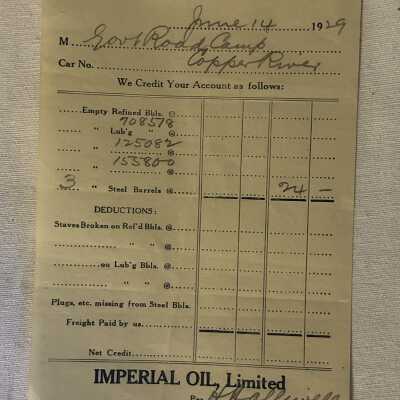 June 14 1929
M Govt Road Camp
Car No. Copper River
We Credit Your Account as follows:
Empty Refined Bbls. @
708578
" Lub'g " @
125082
" " @
155800
" " @
3 " Steel Barrels @ 24 —
DEDUCTIONS:
Staves Broken on Ref'd Bbls. @
" " @
on Lub'g Bbls. @
" " @
Plugs, etc. missing from Steel Bbls.
Freight Paid by us
Net Credit
IMPERIAL OIL, Limited
Per